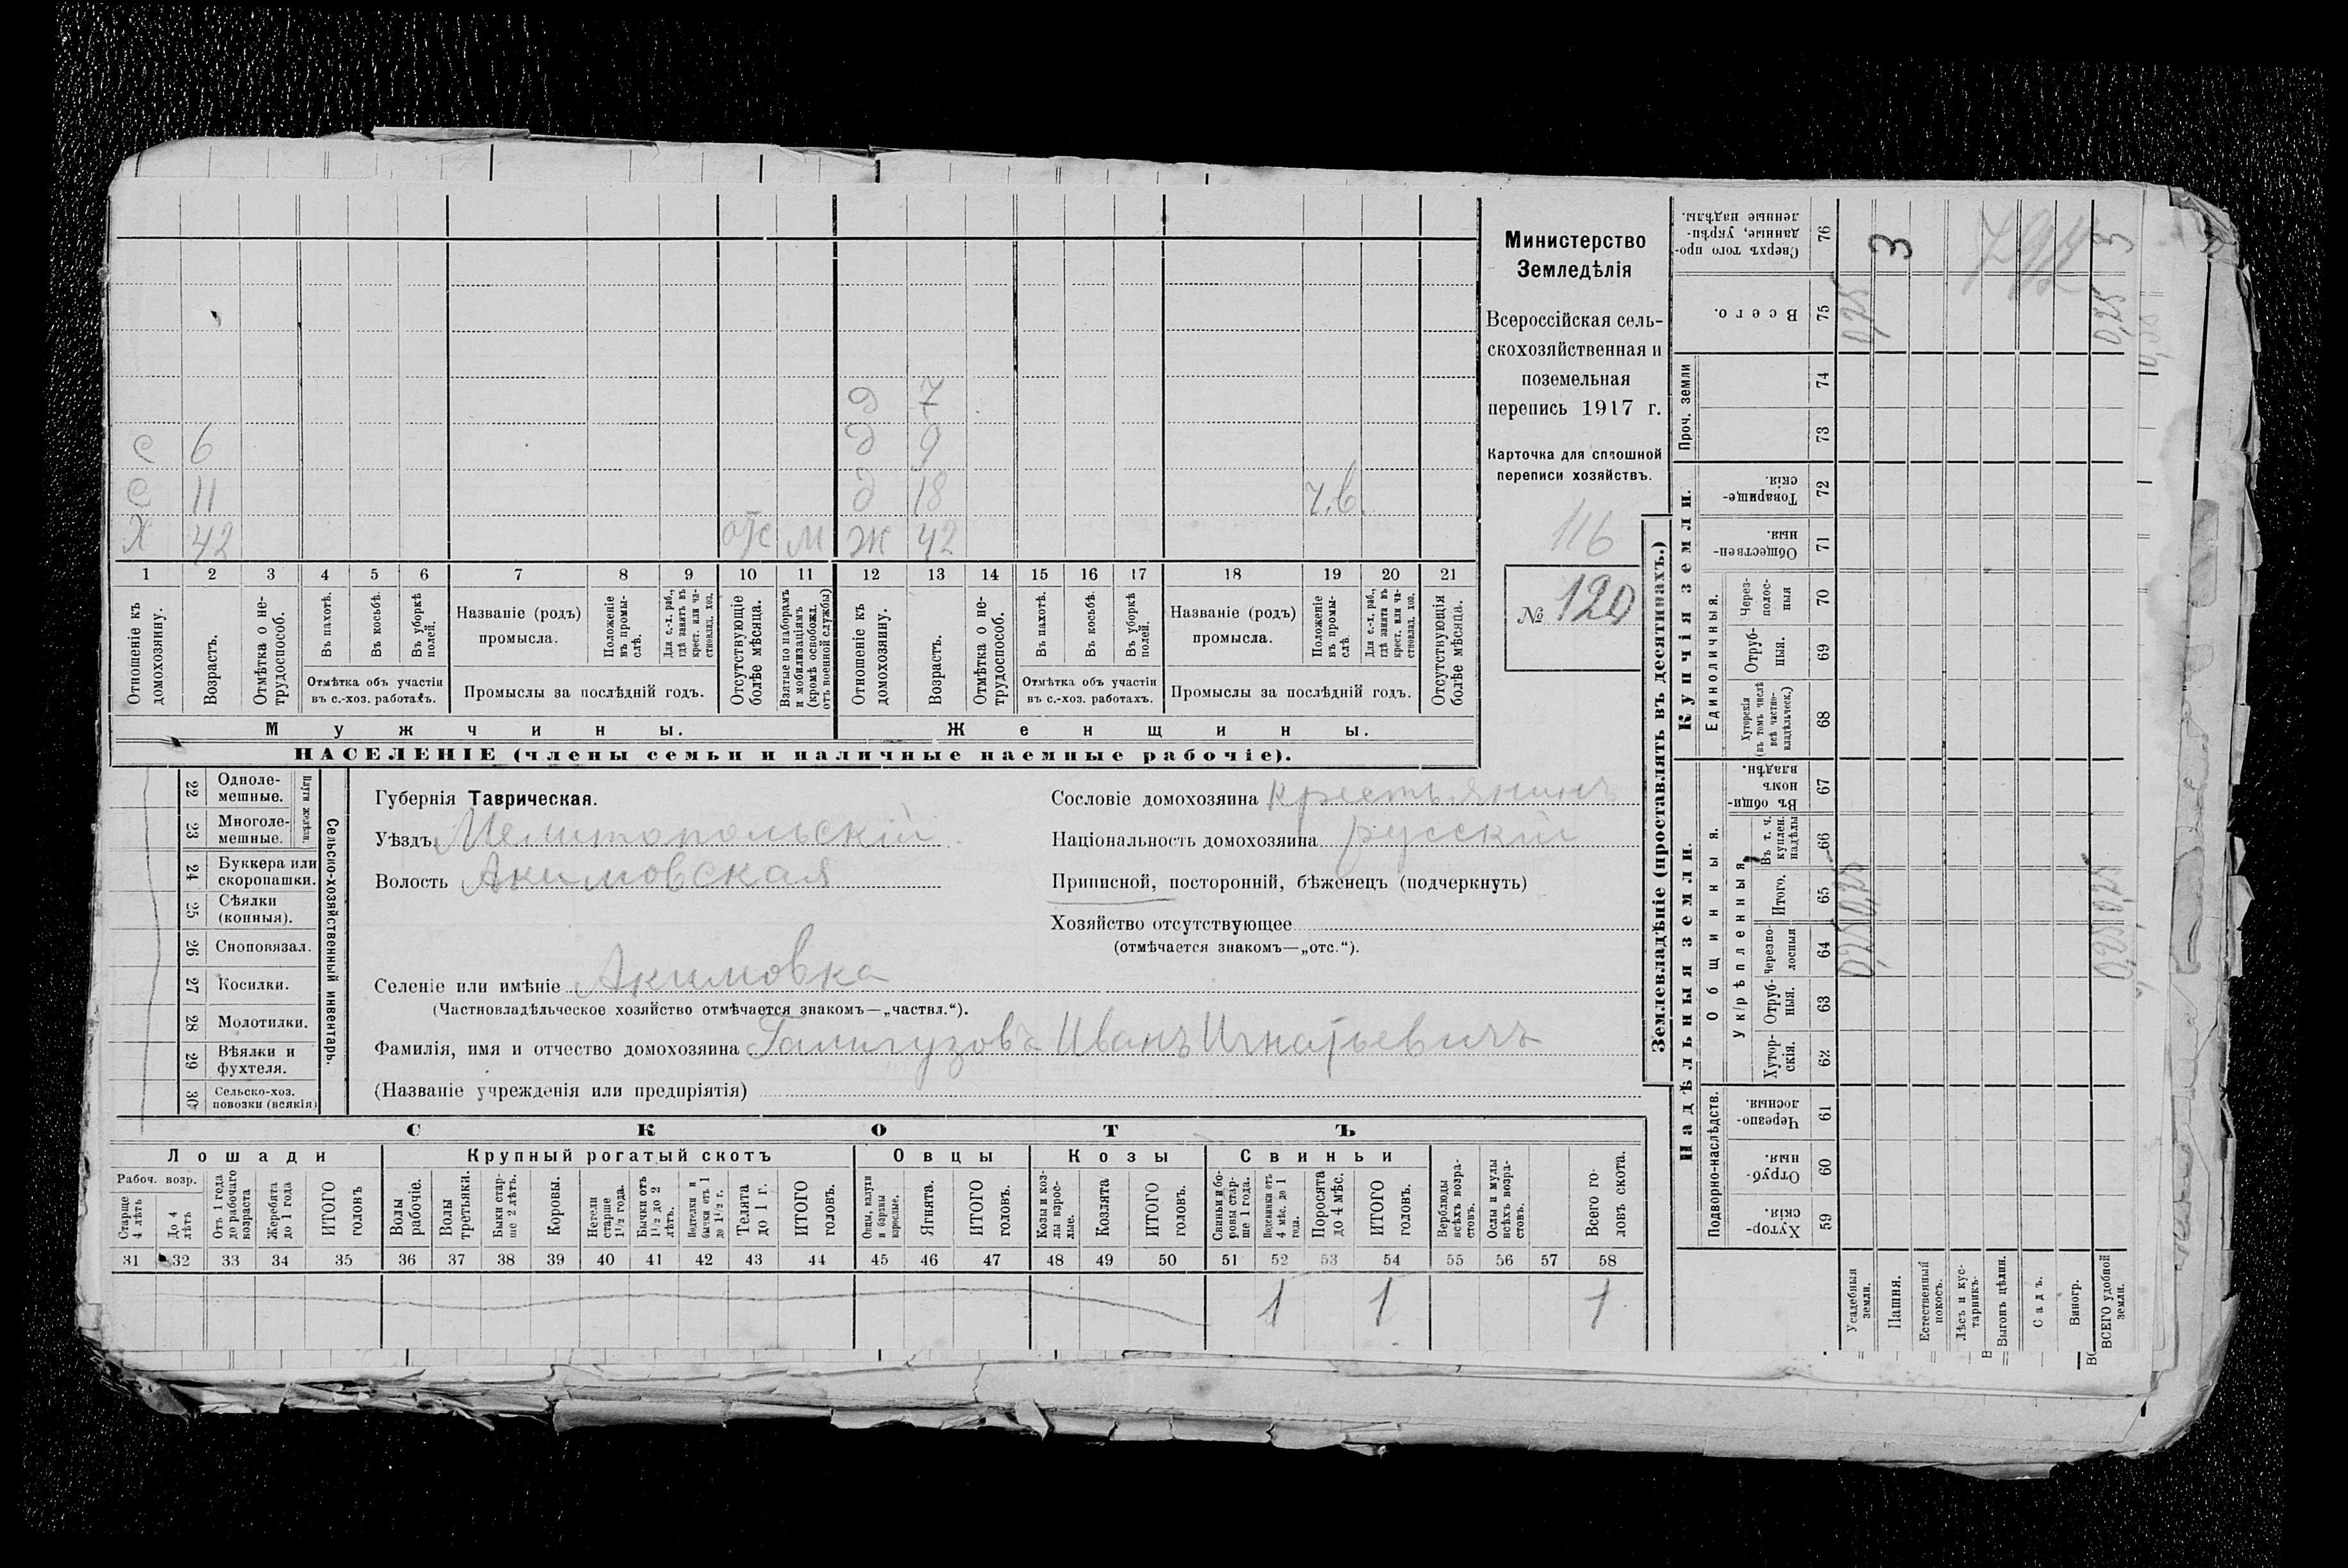 д 7
с 6 д 9
с 11 д 18 ч.в.
х 42 отс м ж 42
1 2 3 4 5 6 7 8 9 10 11 12 13 14 15 16 17 18 19 20 21
Отношеніе къ домохозяину.
Возрастъ.
Отмѣтка о не-трудоспособ.
Въ пахотѣ.
Въ косьбѣ.
Въ уборкѣ полей.
Отмѣтка объ участіи
въ с.-хоз. работахъ.
Названіе (родъ)
промысла.
Положеніе въ промы-слѣ.
Для с.-х. раб., гдѣ занятъ въ крест. или ча-стновлад. хоз.
Промыслы за послѣдній годъ.
Отсутствующіе болѣе мѣсяца.
Взятые по наборамъ и мобилизаціямъ (кромѣ освобожд. отъ военной службы)
Отношеніе къ домохозяину.
Возрастъ.
Отмѣтка о не-трудоспособ.
Въ пахотѣ.
Въ косьбѣ.
Въ уборкѣ полей.
Отмѣтка объ участіи
въ с.-хоз. работахъ.
Названіе (родъ)
промысла.
Положеніе въ промы-слѣ.
Для с.-х. раб., гдѣ занята въ крест. или ча-стновлад. хоз.
Промыслы за послѣдній годъ.
Отсутствующія болѣе мѣсяца.
Мужчины. Женщины.
НАСЕЛЕНІЕ (члены семьи и наличные наемные рабочіе).
Министерство
Земледѣлія
Всероссійская сель-
скохозяйственная и
поземельная
перепись 1917 г.
Карточка для сплошной
переписи хозяйствъ.
116
№ 120
22 Одноле-мешные.
23 Многоле-мешные.
Плуги желѣзн.
24 Буккера или скоропашки.
25 Сѣялки (конныя).
26 Сноповязал.
27 Косилки.
28 Молотилки.
29 Вѣялки и фухтеля.
30 Сельско-хоз. повозки (всякія)
Сельско-хозяйственный инвентарь.
Губернія Таврическая.
Уѣздъ Мелитопольскій
Волость Акимовская
Сословіе домохозяина крестьянинъ
Національность домохозяина русскій
Приписной, посторонній, бѣженецъ (подчеркнуть)
Хозяйство отсутствующее
(отмѣчается знакомъ—„отс.“).
Селеніе или имѣніе Акимовка
(Частновладѣльческое хозяйство отмѣчается знакомъ—„частвл.“).
Фамилія, имя и отчество домохозяина Галигузовъ Иванъ Игнатьевичъ
(Названіе учрежденія или предпріятія)
СКОТЪ
Лошади Крупный рогатый скотъ Овцы Козы Свиньи
Рабоч. возр.
Старше 4 лѣтъ
До 4 лѣтъ
Отъ 1 года до рабочаго возраста
Жеребята до 1 года
ИТОГО головъ
Волы рабочіе.
Волы третьяки.
Быки стар-ше 2 лѣтъ.
Коровы.
Нетели старше 1½ года.
Бычки отъ 1½ до 2 лѣтъ.
Подтелки и бычки отъ 1 до 1½ г.
Телята до 1 г.
ИТОГО головъ.
Овцы, валухи и бараны взрослые.
Ягнята.
ИТОГО головъ.
Козы и коз-лы взрос-лые.
Козлята
ИТОГО головъ.
Свиньи и бо-ровы стар-ше 1 года.
Подсвинки отъ 4 мѣс. до 1 года.
Поросята до 4 мѣс.
ИТОГО головъ.
Верблюды всѣхъ возра-стовъ.
Ослы и мулы всѣхъ возра-стовъ.
Всего го-ловъ скота.
31 32 33 34 35 36 37 38 39 40 41 42 43 44 45 46 47 48 49 50 51 52 53 54 55 56 57 58
1 1 1
Землевладѣніе (проставлять въ десятинахъ.)
Надѣльныя земли. Купчія земли.
Подворно-наслѣдств.
Общинныя.
Укрѣпленныя
Единоличныя.
Проч. земли
Хутор-скія. 59
Отруб-ныя. 60
Черезпо-лосныя. 61
Хутор-скія. 62
Отруб-ныя. 63
Черезпо-лосныя 64
Итого. 65
Въ т. ч. куплен. надѣлы 66
Въ общи-номъ владѣн. 67
Хуторскія (въ томъ числѣ всѣ частно-владѣльческ.) 68
Отруб-ныя. 69
Через-полос-ныя 70
Обществен-ныя 71
Товарище-скія. 72
73
74
Всего. 75
Сверхъ того про-данные, укрѣп-ленные надѣлы. 76
Усадебныя земли. 0,25 0,25 0,25
Пашня. 3
Естественный покосъ.
Лѣсъ и кус-тарникъ.
Выгонъ цѣлин.
Садъ.
Виногр.
ВСЕГО удобной земли. 0,25 0,25 0,25 3